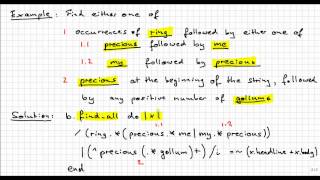 Example: Find either one of
1 occurrences of ring followed by either one of
1.1 precious followed by me
1.2 my followed by precious
2 precious at the beginning of the string, followed
by any positive number of gollums
Solution: b.find_all do |x|
1.1 1.2
/(ring.*(precious.*me|my.*precious)
|(^precious(.*gollum)+)/i =~ (x.headline + x.body)
2
end